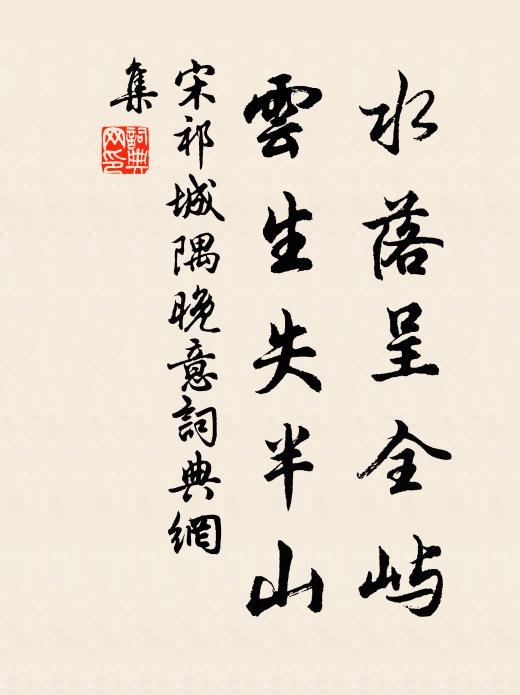 水落呈全屿
雲生失半山
宋祁城隅晚意詞典網
集
詞典
网印